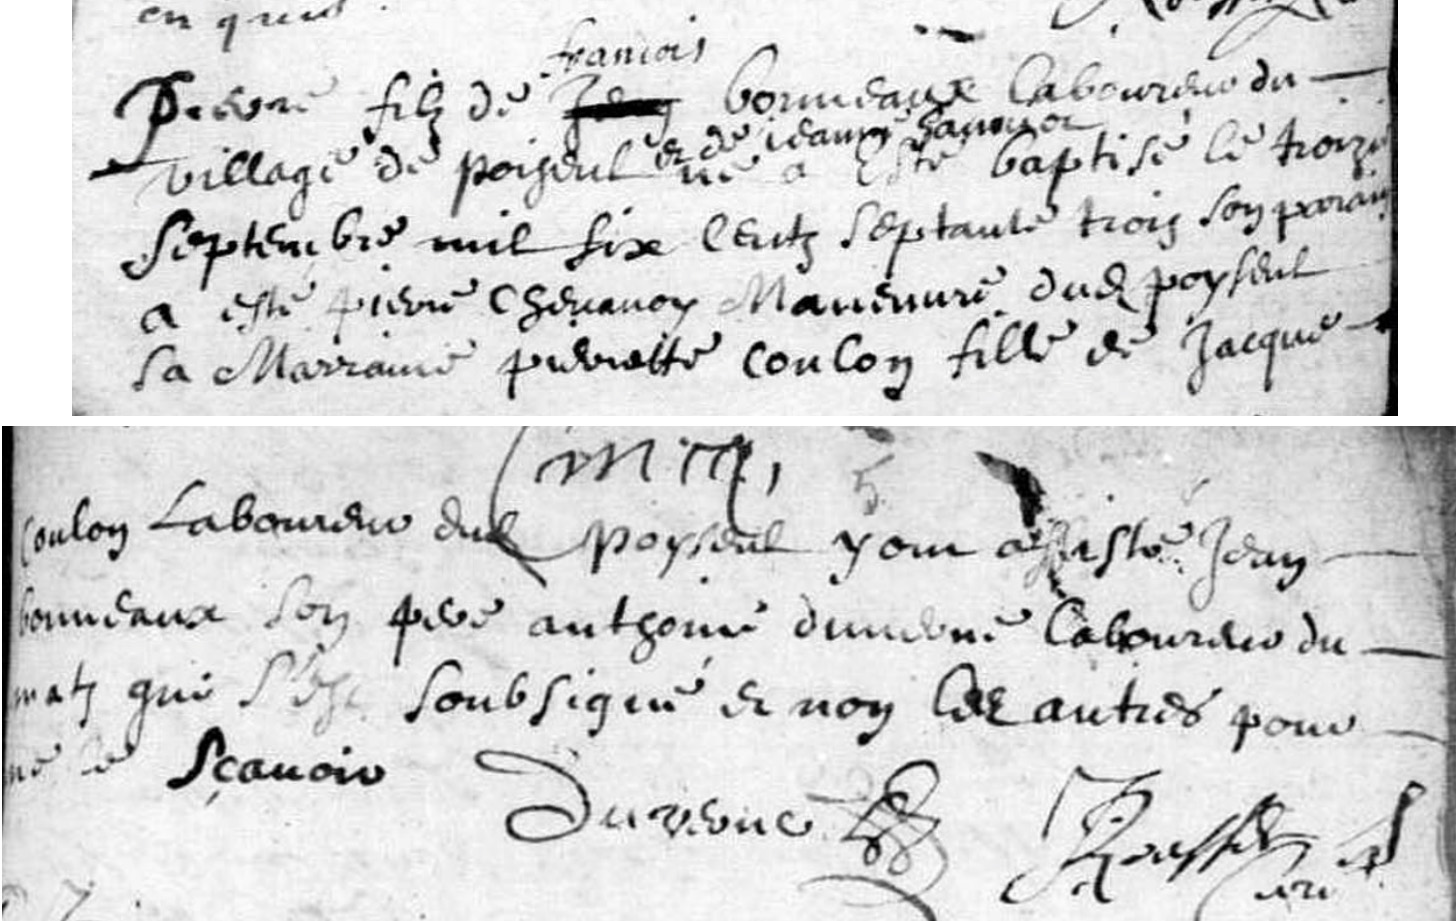 en quis
francois
Pierre filz de Jean bonneaux laboureur du
et de jeanne
village de poiseul né a esté baptisé le troizie
septembre mil six centz septante trois son parain
a esté pierre Chevanoy Manevure dud poyseul
sa Marraine pierrette coulon fille de Jacque
coulon Laboureur dud poyseul y ont assisté Jean
bonneaux son pere anthoine duverne laboureur du
matz qui s'est soubsigné et non les autres pour
ne le sçavoir
Duverne